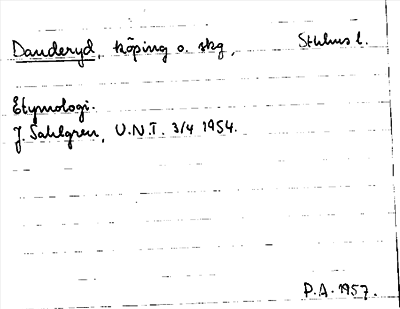 Danderyd, köping o. skg, Sthlms l.
Etymologi.
J. Sahlgren, U.N.T. 3/4 1954.
P.A. 1957.